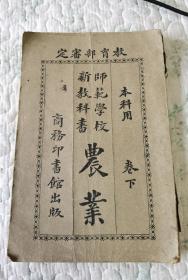 教育部審定
本科用
卷下
師範學校
新教科書
農業
商務印書館出版